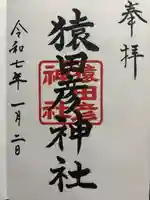 奉拝
猿田彦神社
猿田彦
神社
令和七年一月二日